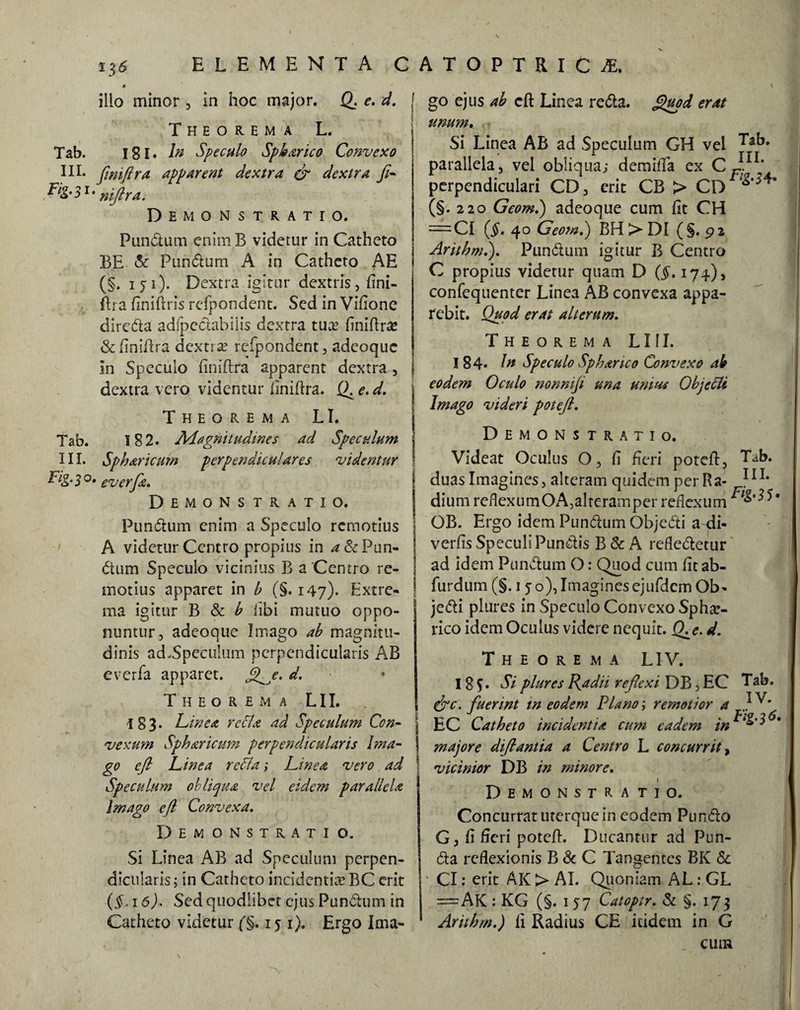 136 ELEMENTA CATOPTRICÆ.
illo minor, in hoc major. Q. e. d.
THEOREMA L.
Tab. III. Fig. 31.
181. In Speculo Sphærico Convexo
sinistra apparent dextra & dextra si-
nistra.
DEMONSTRATIO.
Punctum enim B videtur in Catheto
BE & Punctum A in Catheto AE
(§. 151). Dextra igitur dextris, sini-
stra sinistris respondent. Sed in Visione
directa adspectabilis dextra tuæ sinistræ
& sinistra dextræ respondent, adeoque
in Speculo sinistra apparent dextra,
dextra vero videntur sinistra. Q. e. d.
THEOREMA LI.
Tab. III. Fig. 30.
182. Magnitudines ad Speculum
Sphæricum perpendiculares videntur
eversæ.
DEMONSTRATIO.
Punctum enim a Speculo remotius
A videtur Centro propius in a & Pun-
ctum Speculo vicinius B a Centro re-
motius apparet in b (§. 147). Extre-
ma igitur B & b sibi mutuo oppo-
nuntur, adeoque Imago ab magnitu-
dinis ad Speculum perpendicularis AB
eversa apparet. Q. e. d.
THEOREMA LII.
183. Lineæ rectæ ad Speculum Con-
vexum Sphæricum perpendicularis Ima-
go est Linea recta; Lineæ vero ad
Speculum obliquæ vel eidem parallelæ
Imago est Convexa.
DEMONSTRATIO.
Si Linea AB ad Speculum perpen-
dicularis; in Catheto incidentiæ BC erit
(§. 16). Sed quodlibet ejus Punctum in
Catheto videtur (§. 151). Ergo Ima-
go ejus ab est Linea recta. Quod erat
unum.
Tab. III. Fig. 34.
Si Linea AB ad Speculum GH vel
parallela, vel obliqua; demissa ex C
perpendiculari CD, erit CB > CD
(§. 220 Geom.) adeoque cum sit CH
=CI (§. 40 Geom.) BH > DI (§. 92
Arithm.). Punctum igitur B Centro
C propius videtur quam D (§. 174),
consequenter Linea AB convexa appa-
rebit. Quod erat alterum.
THEOREMA LIII.
184. In Speculo Sphærico Convexo ab
eodem Oculo nonnisi una unius Objecti
Imago videri potest.
DEMONSTRATIO.
Tab. III. Fig. 35.
Videat Oculus O, si fieri potest,
duas Imagines, alteram quidem per Ra-
dium reflexum OA, alteram per reflexum
OB. Ergo idem Punctum Objecti a di-
versis Speculi Punctis B & A reflectetur
ad idem Punctum O: Quod cum sit ab-
surdum (§. 150), Imagines ejusdem Ob-
jecti plures in Speculo Convexo Sphæ-
rico idem Oculus videre nequit. Q. e. d.
THEOREMA LIV.
Tab. IV. Fig. 36.
185. Si plures Radii reflexi DB, EC
&c. fuerint in eodem Plano; remotior a
EC Catheto incidentiæ cum eadem in
majore distantia a Centro L concurrit,
vicinior DB in minore.
DEMONSTRATIO.
Concurrat uterque in eodem Puncto
G, si fieri potest. Ducantur ad Pun-
cta reflexionis B & C Tangentes BK &
CI: erit AK > AI. Quoniam AL : GL
= AK : KG (§. 157 Catoptr. & §. 173
Arithm.) si Radius CE itidem in G
cum